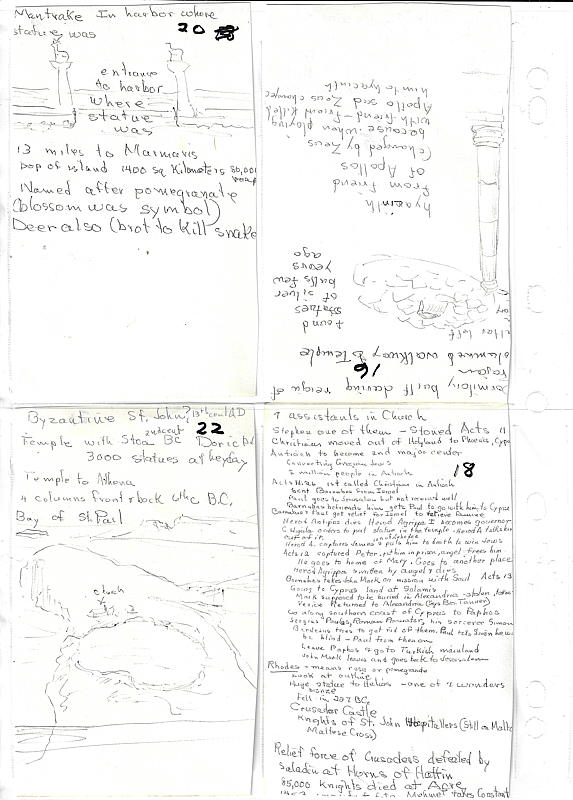 Mantrake In harbor where
statue was
20
entrance
to harbor
where
statue
was
13 miles to Marmaris
pop of island 1400 sq Kilometers 80,000
Named after pomegranate
(blossom was symbol)
Deer also (brot to kill snake
him to hyacinth
Apollo and Zeus changed
with friend-friend killed
because when playing
(changed by Zeus
of Apollos
from friend
hyacinth
ago
years
bulls few
of silver
statues
found
altar left
columned walkway to Temple
16
family built during reign of
Byzantine St. John? 13th cent AD
22
Temple with Stoa 2nd cent BC Doric
3000 statues at heyday
Temple to Athena
4 columns front & back 4th c B.C.
Bay of St. Paul
church
7 assistants in Church
Stephen one of them - Stoned Acts 11
Christians moved out of Holyland to Phoenis, Cyp
Antioch to become 2nd major center
Converting Grecian Jews
million people in Antioch
18
Acts 11:26 1st called Christians in Antioch
Sent Barnabas From Israel
Paul goes to Jerusalem but not received well
Barnabas befriends him gets Paul to go with him to Cyprus
Barnabas & Paul get relief for Israel to relieve famine
Herod Antipas dies Herod Agrippa I becomes governor
Caligula orders to put statue in the temple - Herod A talks him
out of it
Herod A. captures James & puts him to death to win Jews
Acts 12 captured Peter, put him in prison, angel frees him
He goes to home of Mary. Goes to another place
Herod Agrippa smitten by angel & dies
Barnabas takes John Mark on mission with Saul Acts 13
Going to Cyprus land at Salamis
Mark supposed to be buried in Alexandria - stolen
Venice Returned to Alexandria (Says Ben Tanner)
Go along southern coast of Cyprus to Paphos
Sergius Paulus, Roman his sorcerer Simon
tries to get rid of them. Paul tells Simon he will
be blind - Paul from then on
Leave Paphos & go to Turkish mainland
John Mark leaves and goes back to Jerusalem
Rhodes - means rose or pomegranate
Look at outline
Huge statue to Helios - one of 7 wonders
bronze
Fell in 227 BC
Crusader Castle
Knights of St. John Hospitallers (Still on Malta
Maltese Cross)
Relief force of Crusaders defeated by
Saladin at Horns of Hattin
85,000 Knights died at Acre